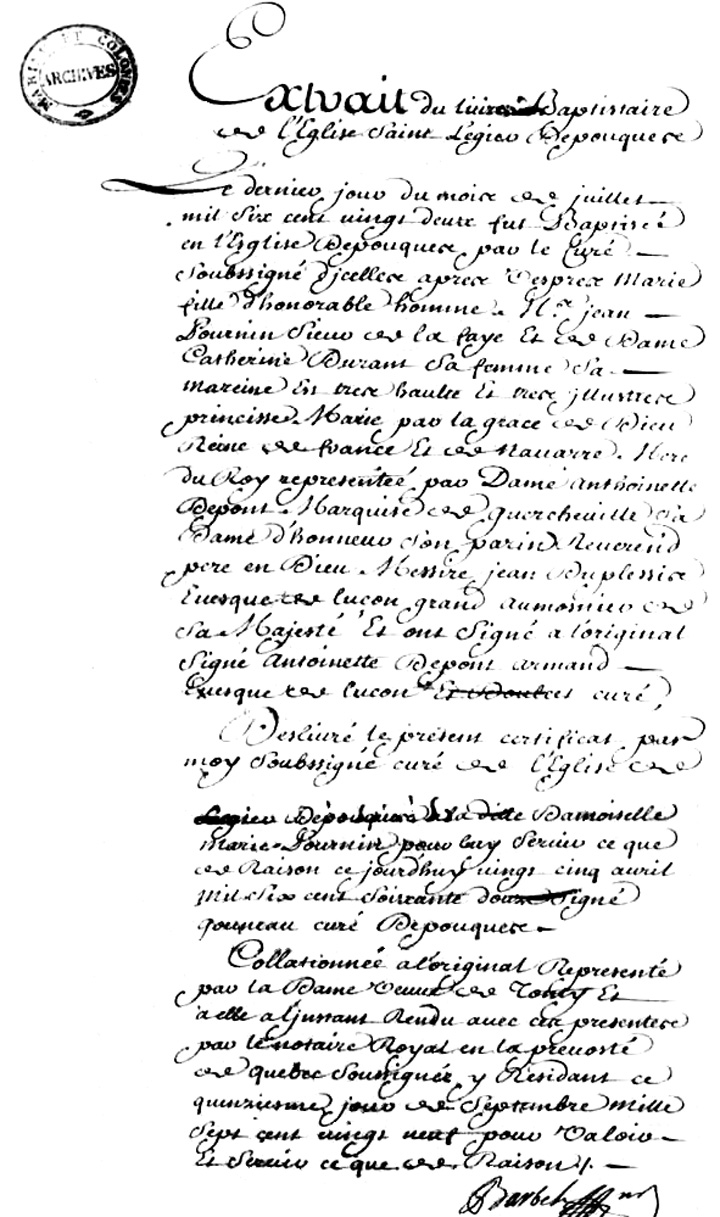 MARINE ET COLONIES
ARCHIVES
Extrait du livre Baptistaire
de l'Eglise Saint Legier Depouquese
Le dernier jour du mois de juillet
mil six cent vingt deux fut Baptisée
en l'Esglise Depouques par le Curé
Soubssigné d'jcelles apres Vespres Marie
fille d'honorable homme Mre jean
Pournin Sieur de la faye Et de Dame
Catherine Durant Sa femme Sa
mareine Est tres haulte Et tres jllustres
princisse Marie par la grace de Dieu
Reine de france Et de Nauarre Mere
du Roy representeé par Dame Anthoinette
Depont Marquise de quercheuille Sa
Dame d'honneur Son parin Reuerend
pere en Dieu Messire jean Duplessis
Euesque de lucon grand aumonier de
Sa Majesté Et ont Signé a l'original
Signé Antoinette Depont armand
Euesque de lucon Et curé
Desliuré le présent certificat par
moy Soubssigné curé de l'Eglise de
Legier Depouques a la ditte Damoiselle
Marie Pournin pour luy Seruir ce que
de Raison ce jourdhuy vingt cinq auril
Mil Six cent Soixante douze Signé
gouneau curé Depouques
Collationneé a l'original Representé
par la Dame Veuue de Et
a elle a l'jnstant Rendu auec ces presentes
par le notaire Royal en la preuosté
de quebec Soussigneé y Residant ce
quinziesme jour de Septembre mille
Sept cent vingt neuf pour Valoir
Et Seruir ce que de Raison /.
Barbel